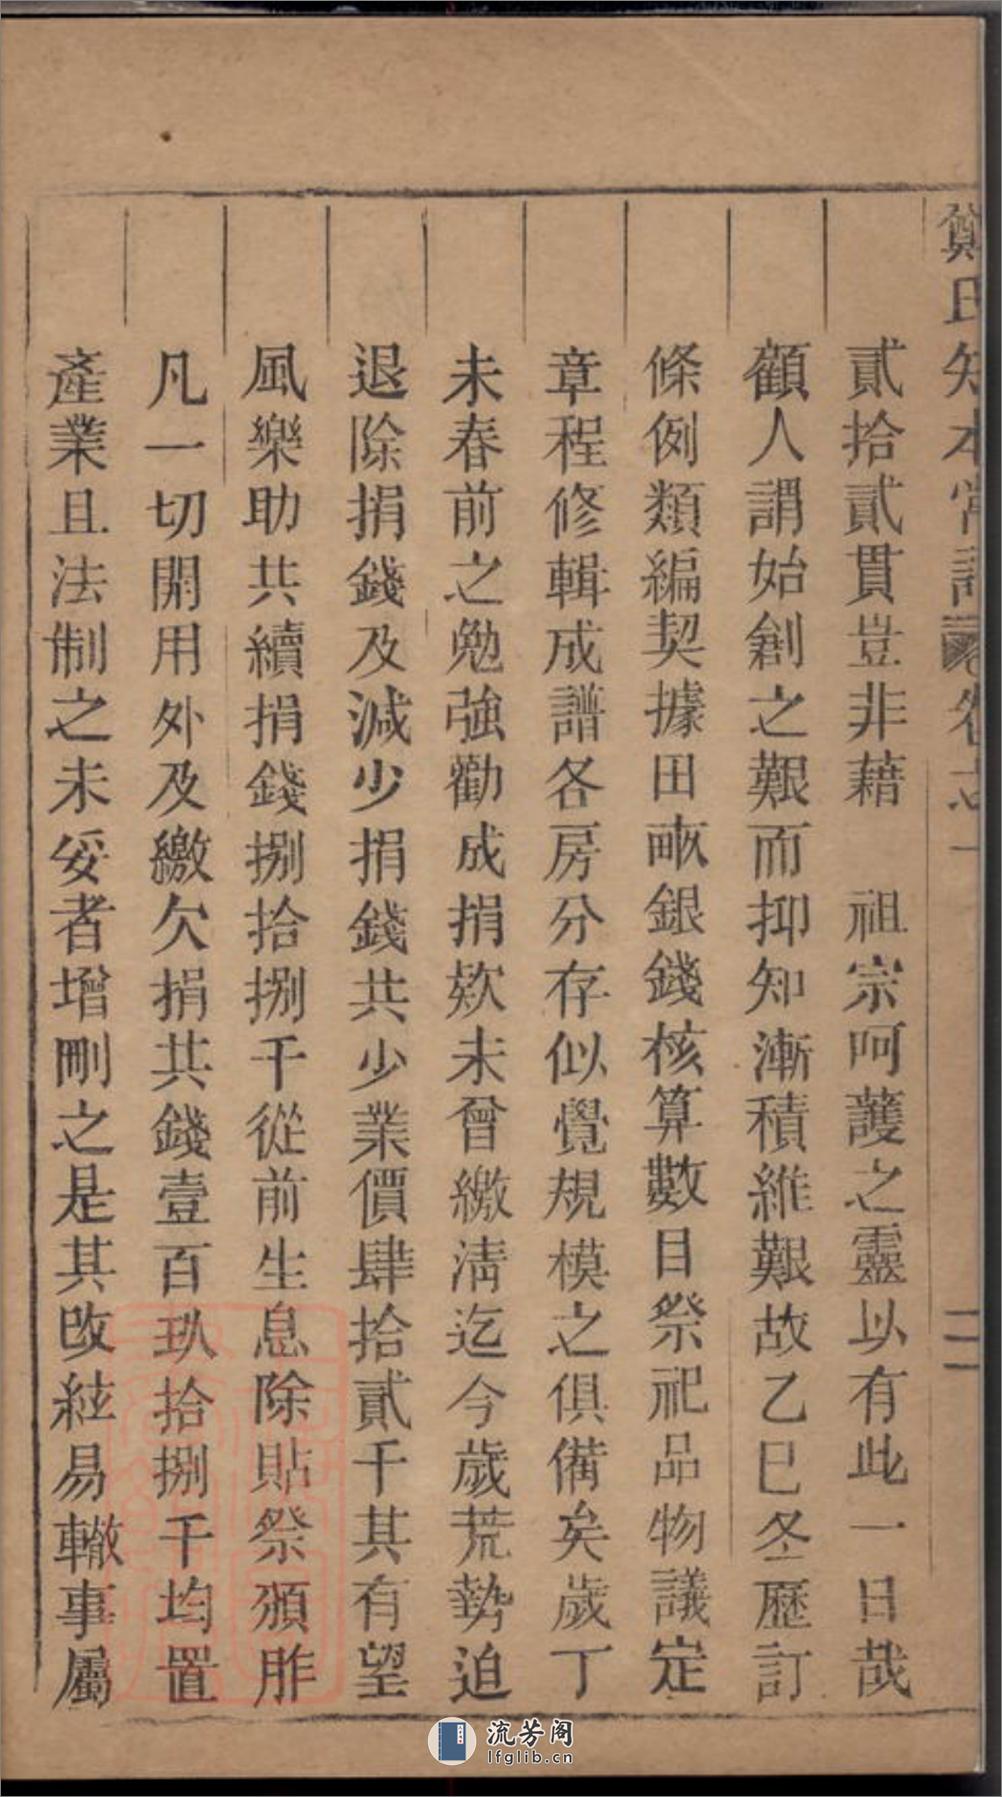 鄭氏知本堂譜 卷之一 二
貳拾貳貫豈非藉 祖宗呵護之靈以有此一日哉
顧人謂始創之艱而抑知漸積維艱故乙巳冬歷訂
條例類編契據田畝銀錢核算數目祭祀品物議定
章程修輯成譜各房分存似覺規模之俱備矣歲丁
未春前之勉強勸成捐欵未曾繳清迄今歲荒勢迫
退除捐錢及減少捐錢共少業價肆拾貳千其有望
風樂助共續捐錢捌拾捌千從前生息除貼祭頒胙
凡一切開用外及繳欠捐共錢壹百玖拾捌千均置
產業且法制之未妥者增刪之是其改絃易轍事屬
流芳阁
lfglib.cn